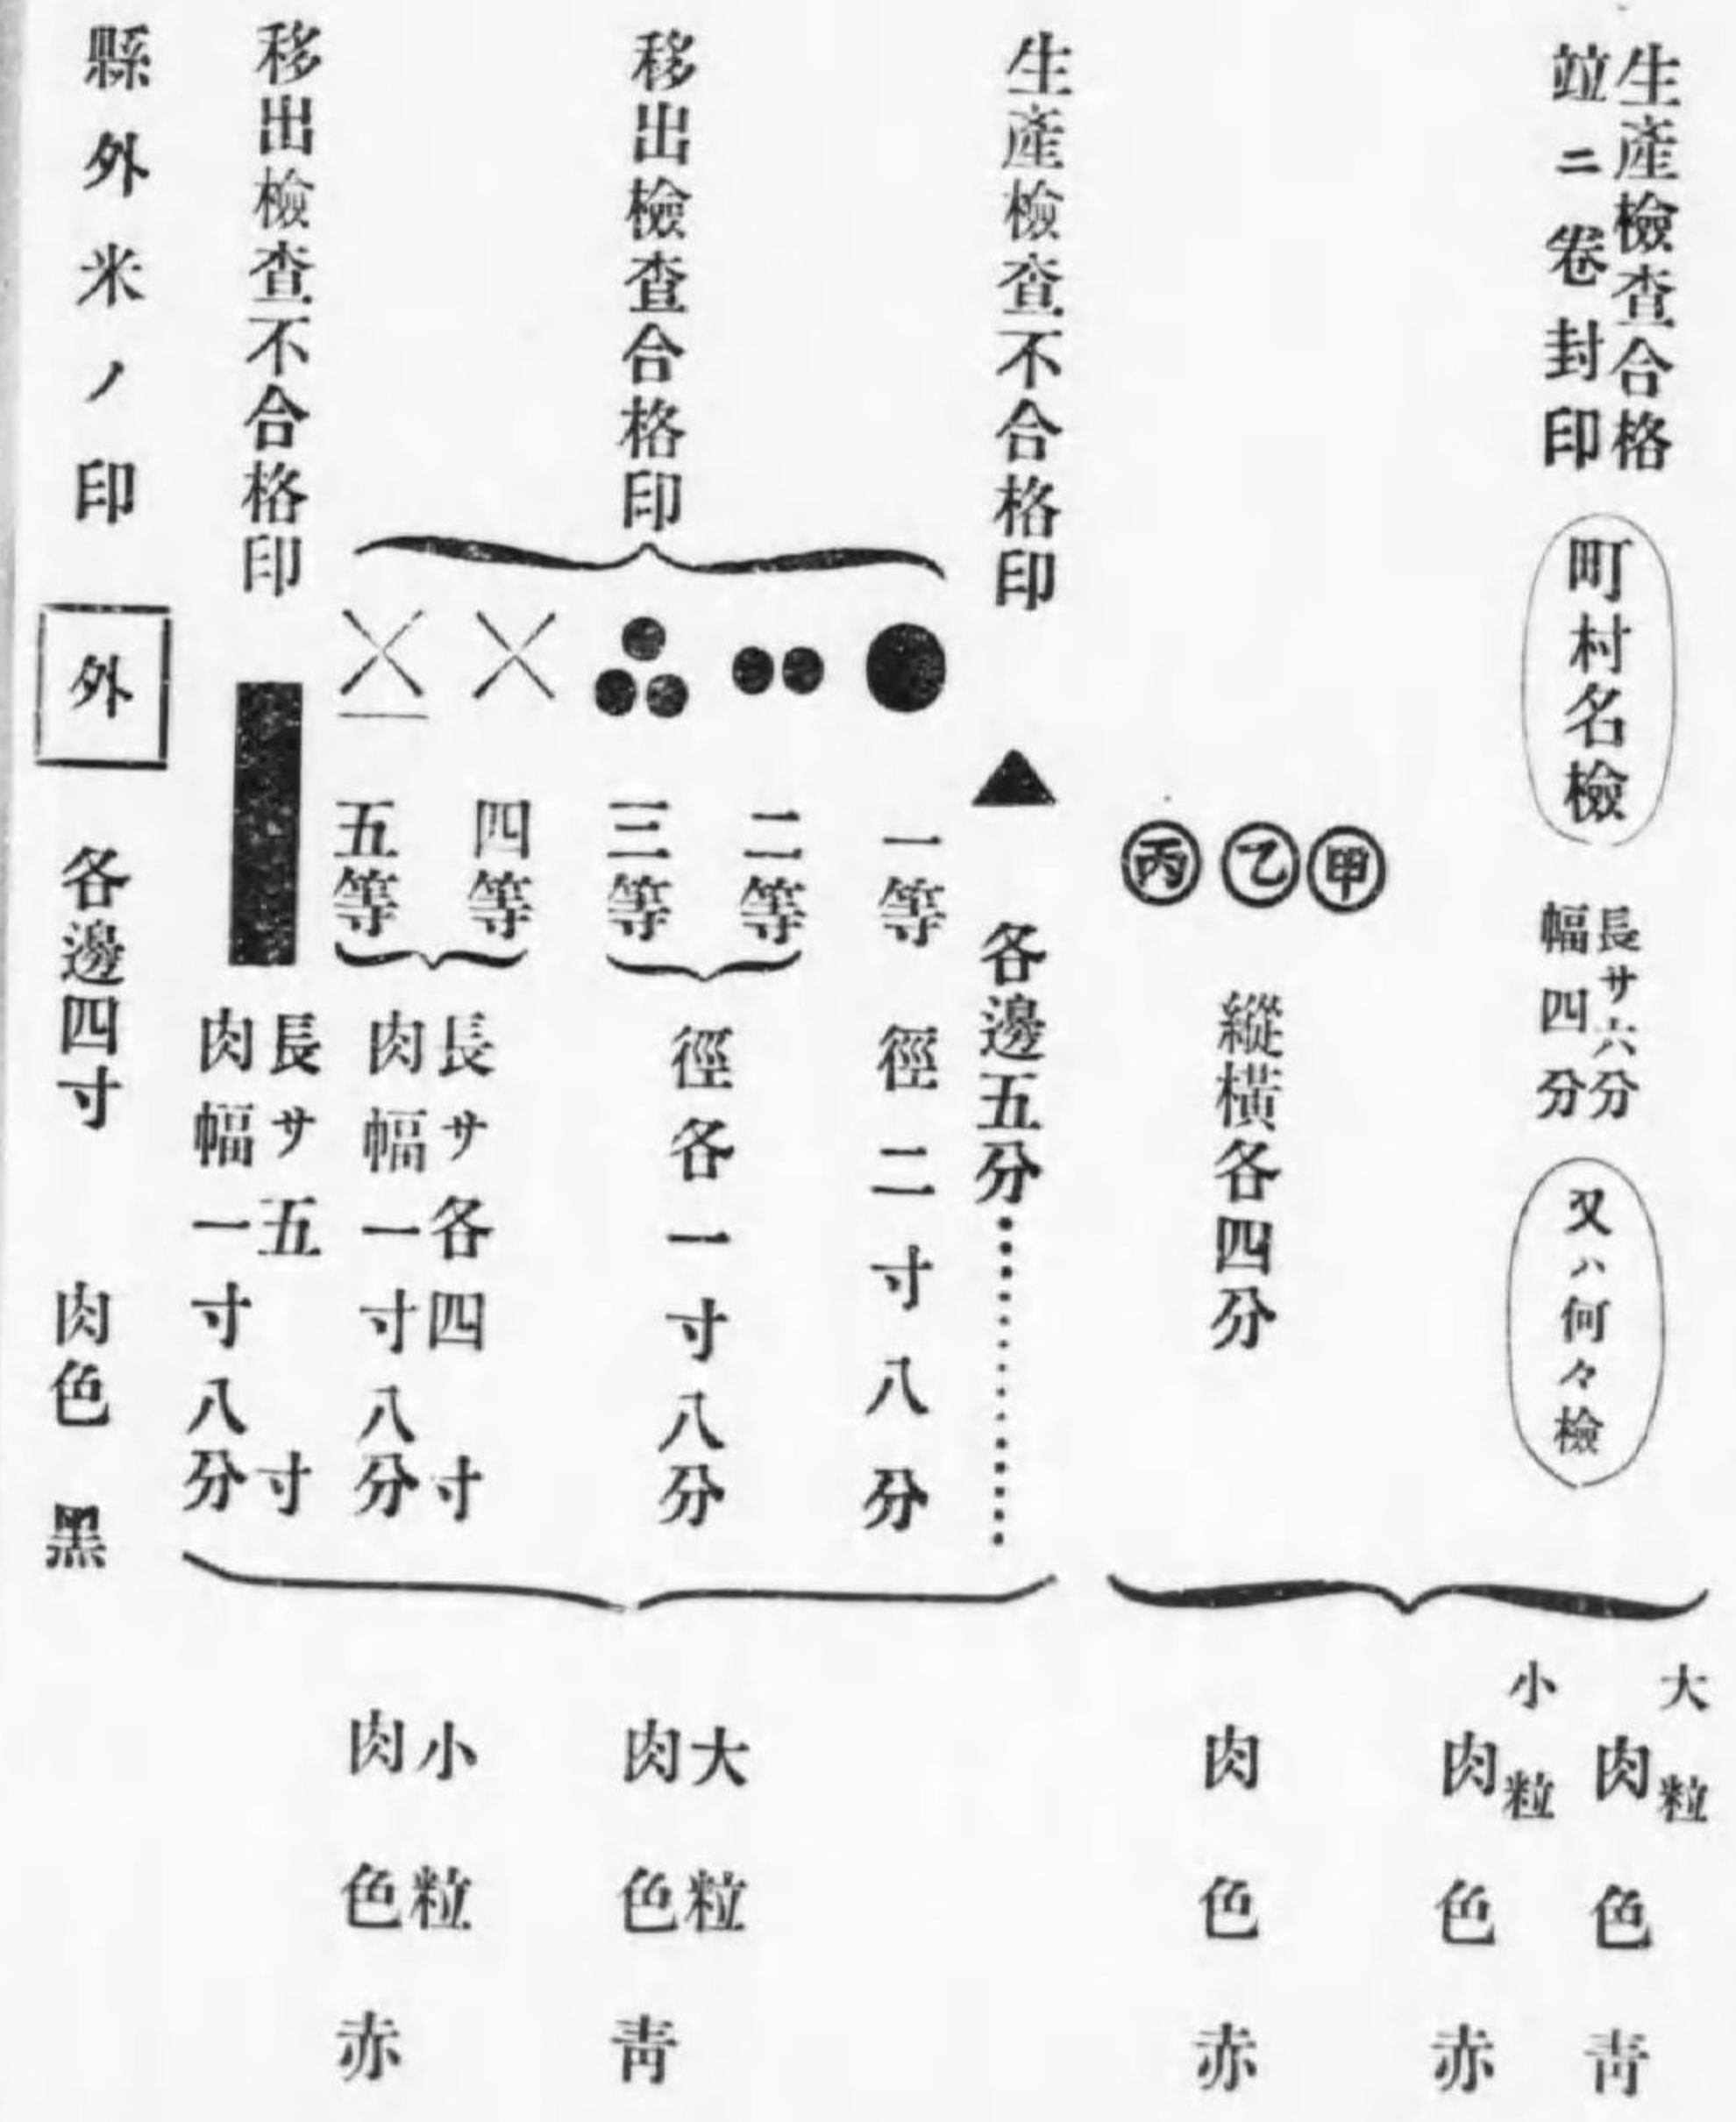 生產檢查合格
竝ニ卷封印
町村名檢
長サ六分
幅四分
又ハ何々檢
甲
乙
丙
縱橫各四分
大粒
肉色青
小粒
肉色赤
肉色赤
生產檢查不合格印
▲
各邊五分…………
移出檢查合格印
●
一等
徑二寸八分
二等
三等
徑各一寸八分
四等
五等
長サ各四寸
肉幅一寸八分
移出檢查不合格印
長サ五寸
肉幅一寸八分
大粒
肉色青
小粒
肉色赤
縣外米ノ印
外
各邊四寸
肉色黑